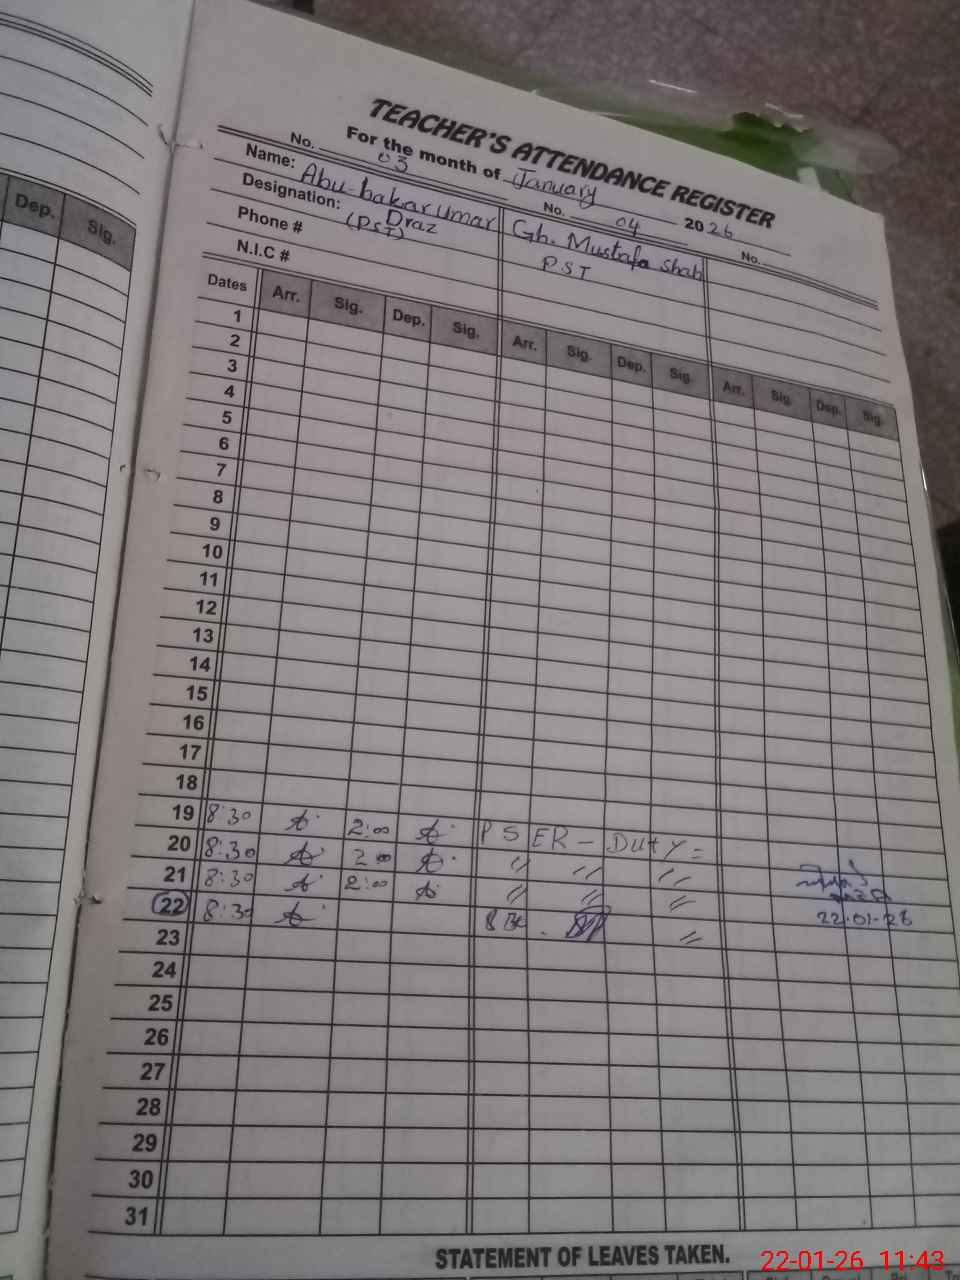 TEACHER'S ATTENDANCE REGISTER
For the month of January 2026
No. 03 No. 04 No.
Name: Abu-bakar umar Draz Gh. Mustafa Shah
Designation: (PST) PST
Phone #
N.I.C #
Dep. Sig.
Dates Arr. Sig. Dep. Sig. Arr. Sig. Dep. Sig. Arr. Sig. Dep. Sig.
1
2
3
4
5
6
7
8
9
10
11
12
13
14
15
16
17
18
19 8:30 2:00 PSER - DUTY =
20 8:30 2:00 〃 〃 〃
21 8:30 2:00 〃 〃 〃
22 8:30 〃 22-01-26
23
24
25
26
27
28
29
30
31
STATEMENT OF LEAVES TAKEN.
22-01-26 11:43